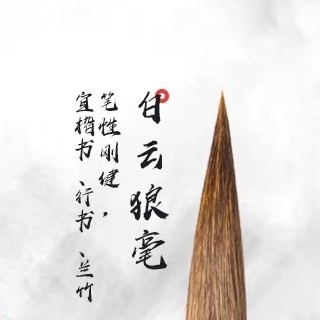 白云狼毫
笔性刚健，
宜楷书、行书、兰竹